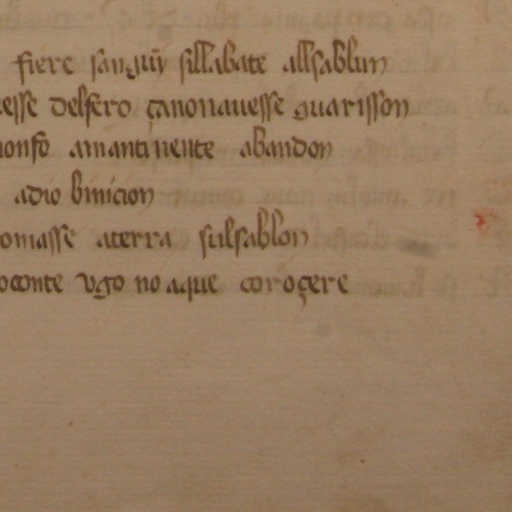 fiere sanguỹ sillabate allsablun
esse delfero çanonauesse guarisson
onfo amantinente abandon
adio binicion
omasse aterra sulsablon
oconte vgo no aque coroçere